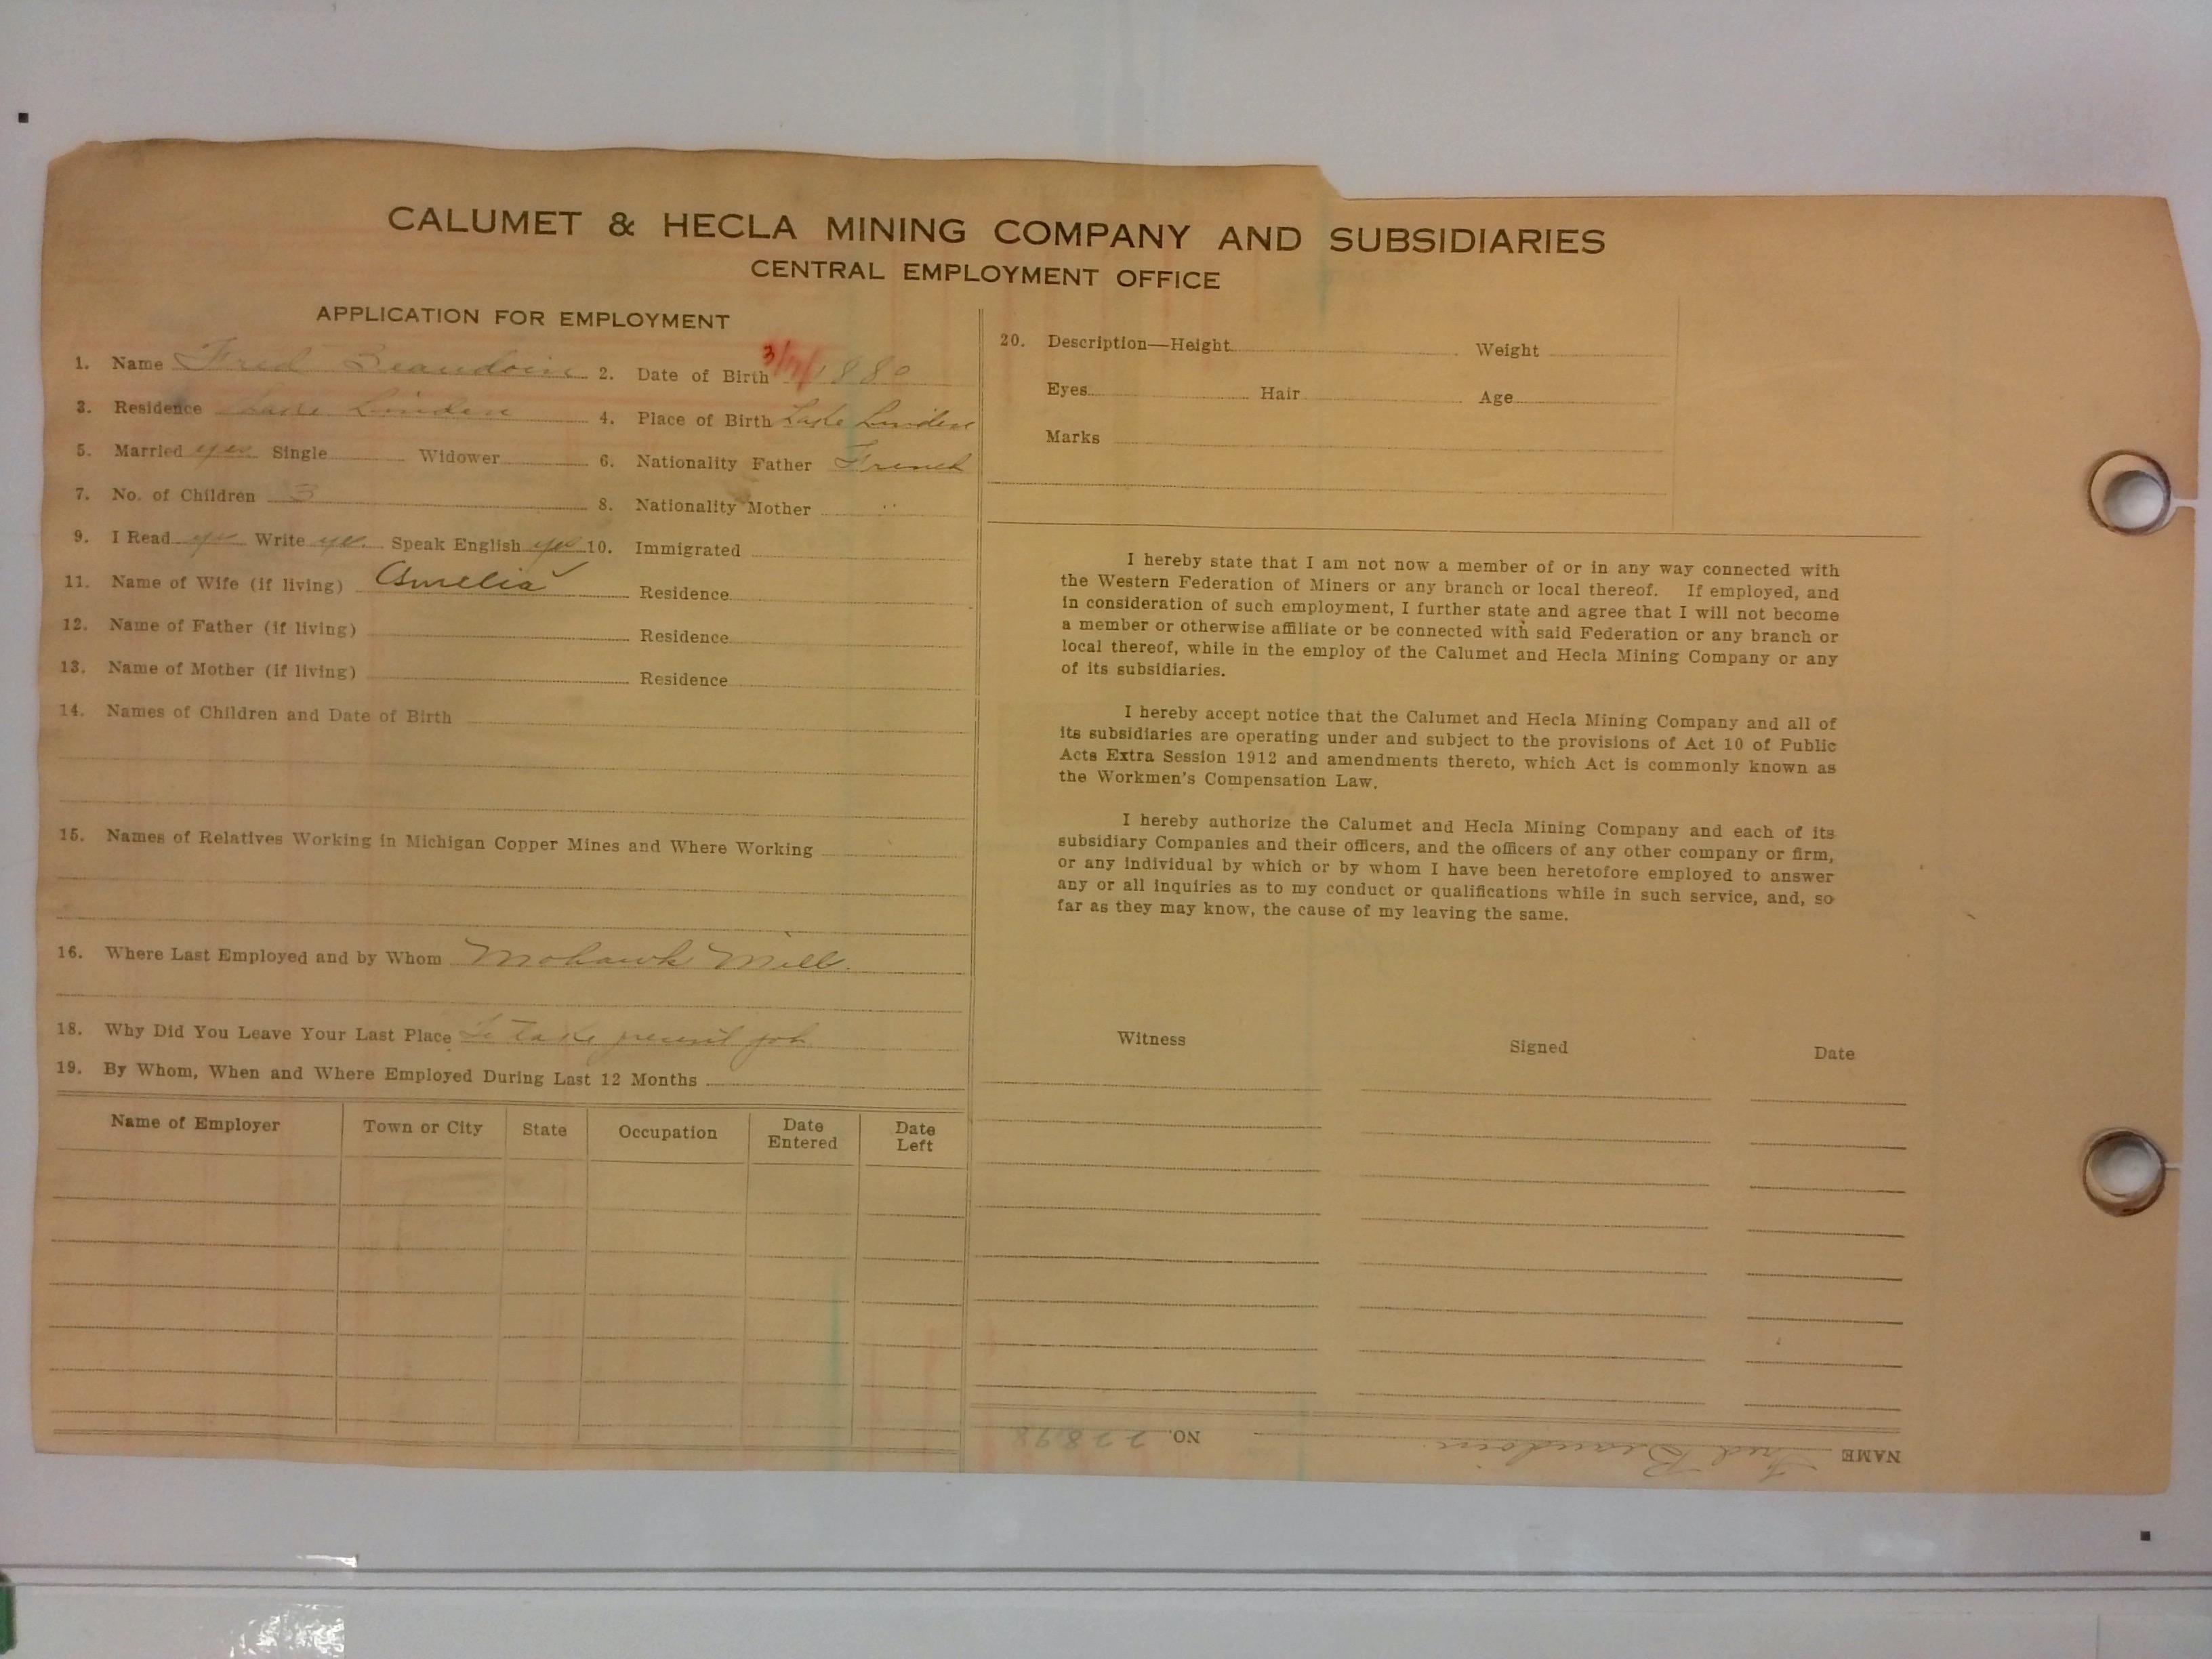 CALUMET & HECLA MINING COMPANY AND SUBSIDIARIES
CENTRAL EMPLOYMENT OFFICE
APPLICATION FOR EMPLOYMENT
1. Name Fred Beaudoin 2. Date of Birth 3/7/1880
3. Residence Lake Linden 4. Place of Birth Lake Linden
5. Married yes Single Widower 6. Nationality Father French
7. No. of Children 3 8. Nationality Mother "
9. I Read yes Write yes Speak English yes 10. Immigrated
11. Name of Wife (if living) Amelia Residence
12. Name of Father (if living) Residence
13. Name of Mother (if living) Residence
14. Names of Children and Date of Birth
15. Names of Relatives Working in Michigan Copper Mines and Where Working
16. Where Last Employed and by Whom Mohawk Mill.
18. Why Did You Leave Your Last Place To take present job
19. By Whom, When and Where Employed During Last 12 Months
Name of Employer Town or City State Occupation Date Entered Date Left
20. Description—Height Weight
Eyes Hair Age
Marks
I hereby state that I am not now a member of or in any way connected with
the Western Federation of Miners or any branch or local thereof. If employed, and
in consideration of such employment, I further state and agree that I will not become
a member or otherwise affiliate or be connected with said Federation or any branch or
local thereof, while in the employ of the Calumet and Hecla Mining Company or any
of its subsidiaries.
I hereby accept notice that the Calumet and Hecla Mining Company and all of
its subsidiaries are operating under and subject to the provisions of Act 10 of Public
Acts Extra Session 1912 and amendments thereto, which Act is commonly known as
the Workmen's Compensation Law.
I hereby authorize the Calumet and Hecla Mining Company and each of its
subsidiary Companies and their officers, and the officers of any other company or firm,
or any individual by which or by whom I have been heretofore employed to answer
any or all inquiries as to my conduct or qualifications while in such service, and, so
far as they may know, the cause of my leaving the same.
Witness Signed Date
NAME Fred Beaudoin NO. 22898